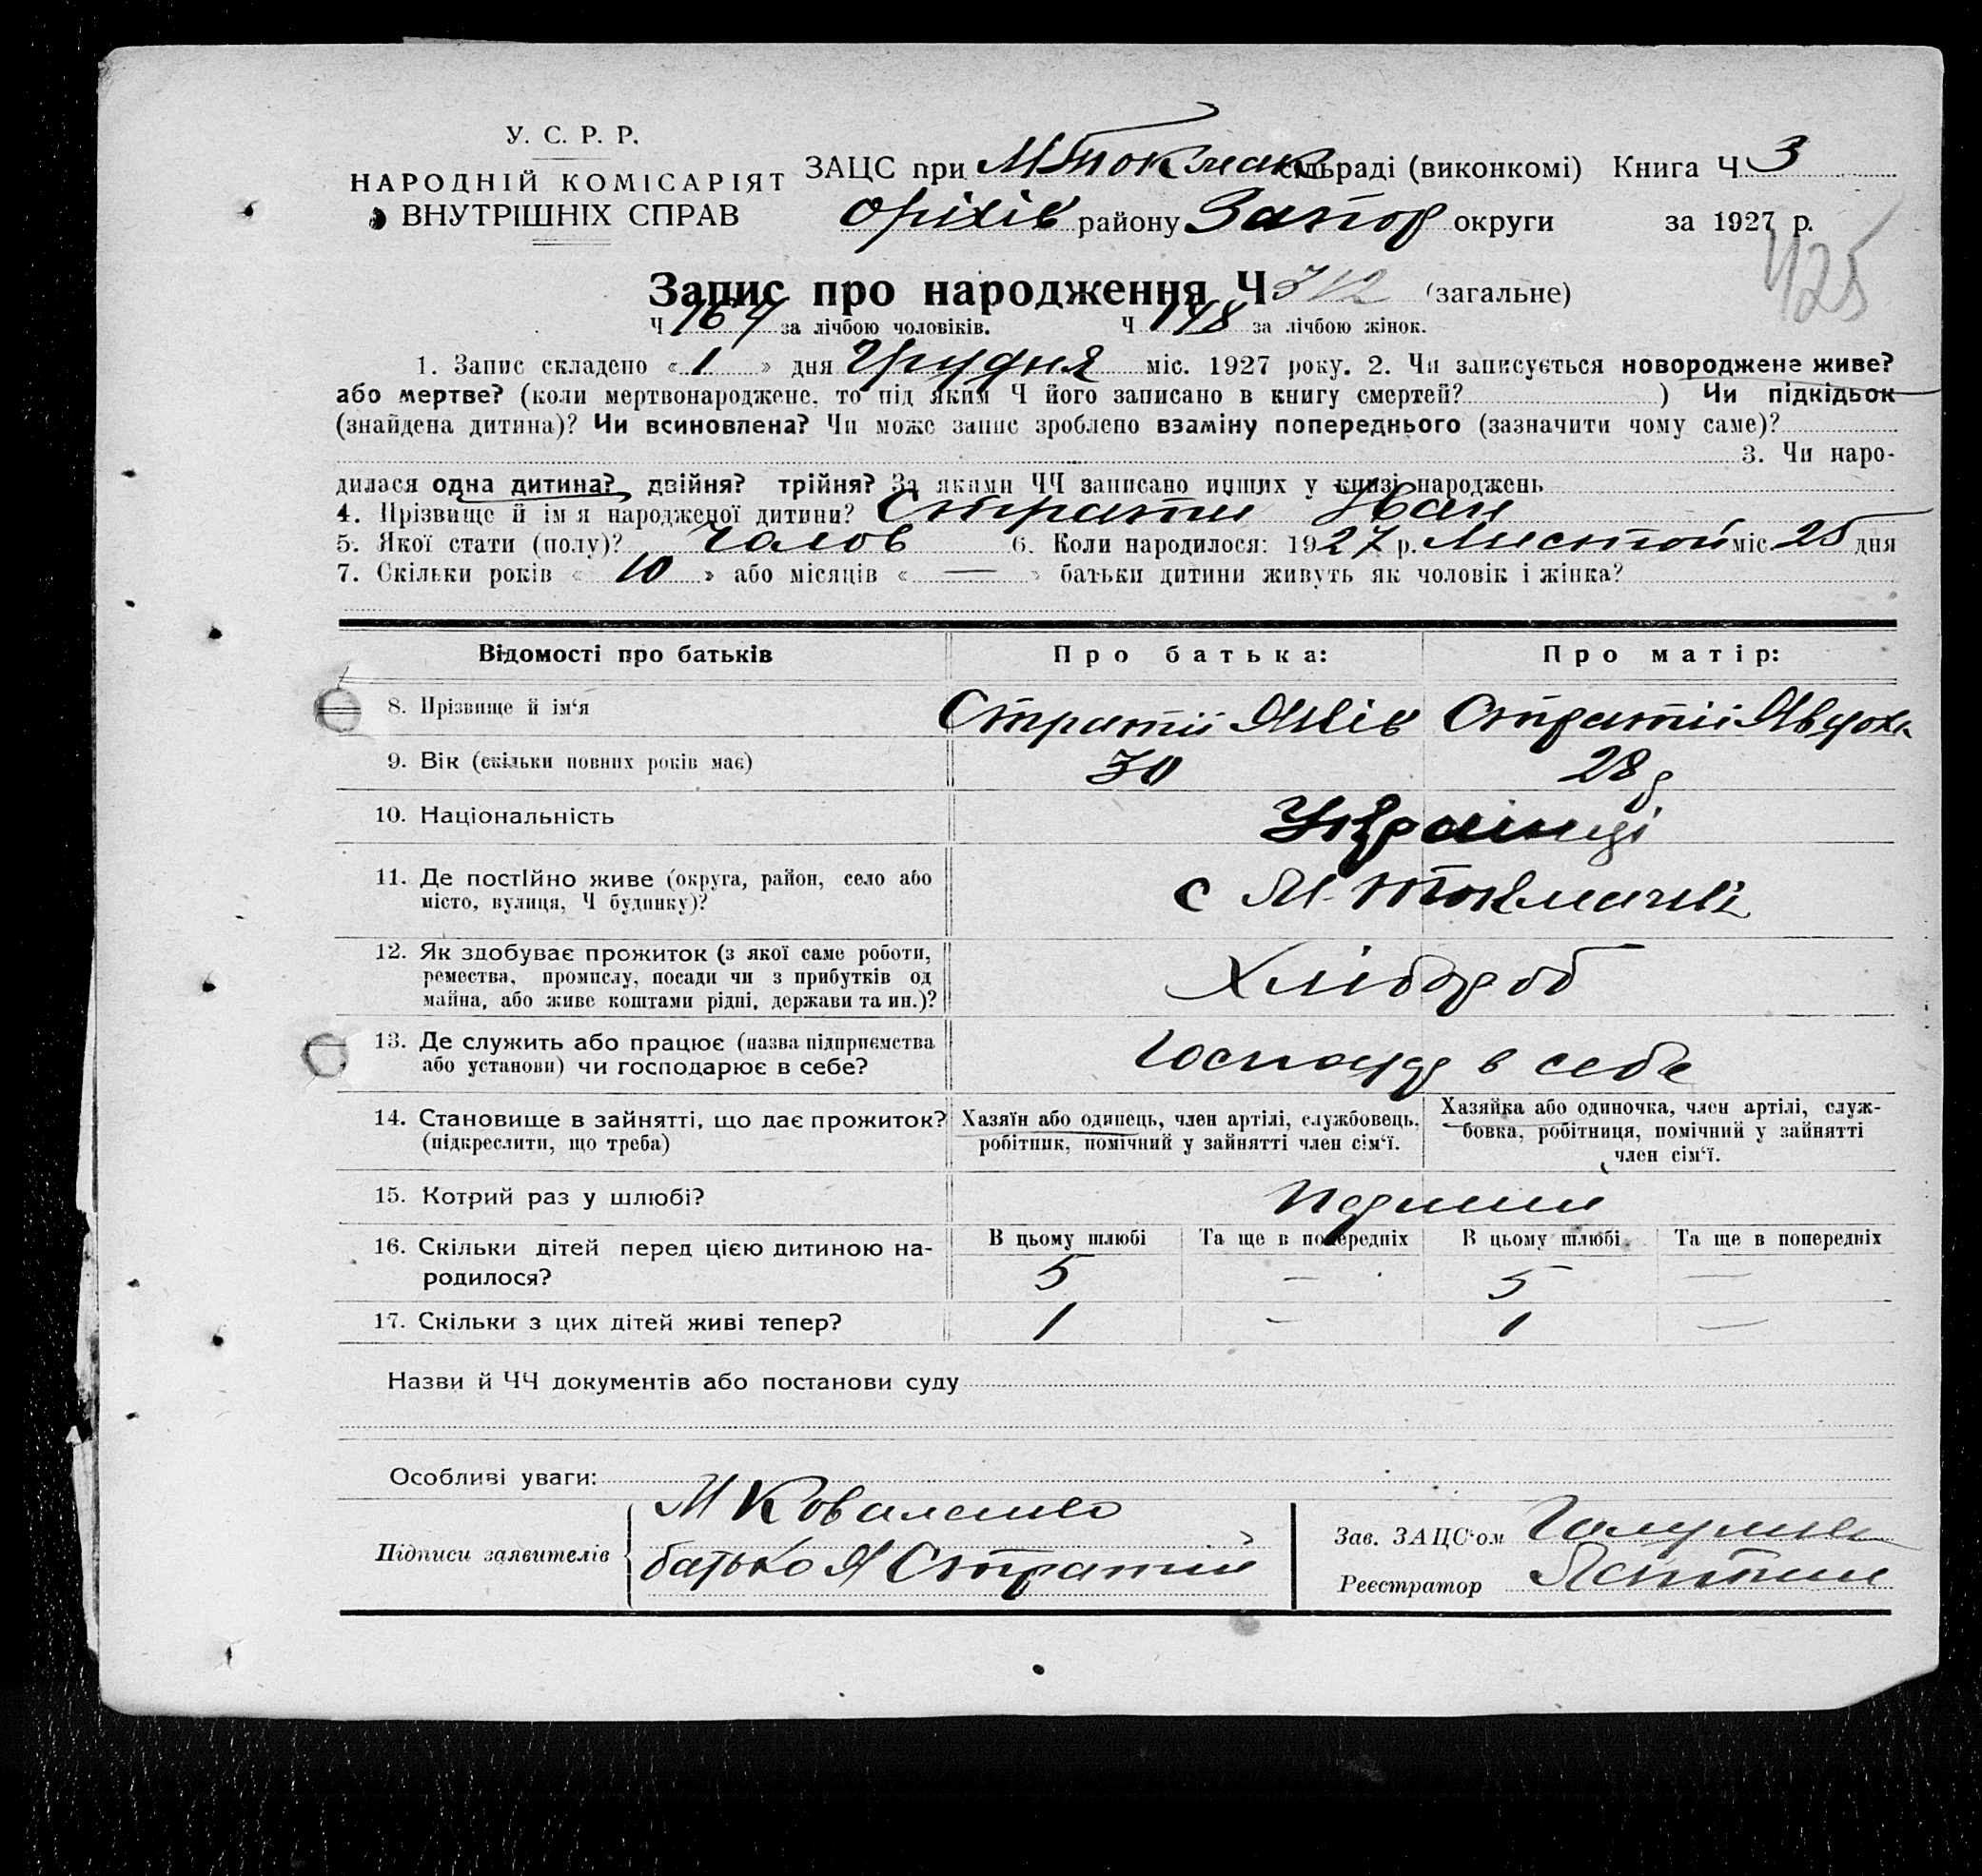 У. С. Р. Р.
НАРОДНІЙ КОМІСАРІЯТ
ВНУТРІШНІХ СПРАВ
ЗАЦС при МТокмак сільраді (виконкомі) Книга Ч 3
Оріхів району Запор округи за 1927 р.
425
Запис про народження Ч 312 (загальне)
Ч 164 за лічбою чоловіків. Ч 148 за лічбою жінок.
1. Запис складено « 1 » дня Грудня міс. 1927 року. 2. Чи записується новороджене живе?
або мертве? (коли мертвонароджене, то під яким Ч його записано в книгу смертей? ) Чи підкідьок
(знайдена дитина)? Чи всиновлена? Чи може запис зроблено взаміну попереднього (зазначити чому саме)?
3. Чи наро-
дилася одна дитина? двійня? трійня? За якими ЧЧ записано инших у книзі народжень
4. Прізвище й ім'я народженої дитини? Стратій Іван
5. Якої стати (полу)? чолов 6. Коли народилося: 1927 р. Листопад міс. 25 дня
7. Скільки років « 10 » або місяців « — » батьки дитини живуть як чоловік і жінка?
Відомості про батьків Про батька: Про матір:
8. Прізвище й ім'я Стратій Яків Стратій Явдоха
9. Вік (скільки повних років має) 30 28 р
10. Національність Українці
11. Де постійно живе (округа, район, село або
місто, вулиця, Ч будинку)? с М. Токмачці
12. Як здобуває прожиток (з якої саме роботи,
ремества, промислу, посади чи з прибутків од
майна, або живе коштами рідні, держави та ин.)? Хлібороб
13. Де служить або працює (назва підприємства
або установи) чи господарює в себе? Господар в себе
14. Становище в зайнятті, що дає прожиток?
(підкреслити, що треба)
Хазяїн або одинець, член артілі, службовець,
робітник, помічний у зайнятті член сім'ї.
Хазяйка або одиночка, член артілі, служ-
бовка, робітниця, помічний у зайнятті
член сім'ї.
15. Котрий раз у шлюбі? Перший
16. Скільки дітей перед цією дитиною на-
родилося?
В цьому шлюбі Та ще в попередніх В цьому шлюбі Та ще в попередніх
5 — 5 —
17. Скільки з цих дітей живі тепер? 1 — 1 —
Назви й ЧЧ документів або постанови суду
Особливі уваги:
Підписи заявителів
М Коваленко
батько Я Стратій
Зав. ЗАЦС'ом
Реєстратор